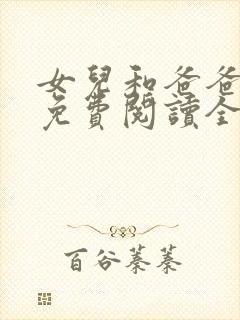 女兒和爸爸
免費閱讀全
百谷蓁蓁